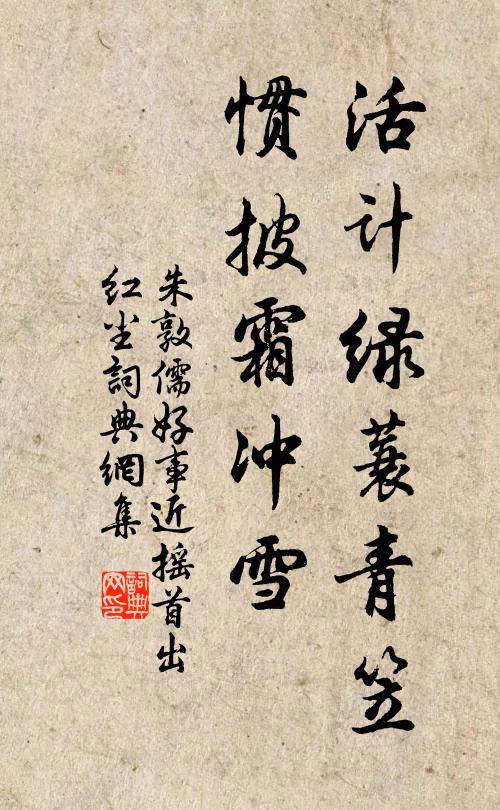 活计绿蓑青笠
惯披霜冲雪
朱敦儒好事近摇首出
红尘詞典網集
詞典网印